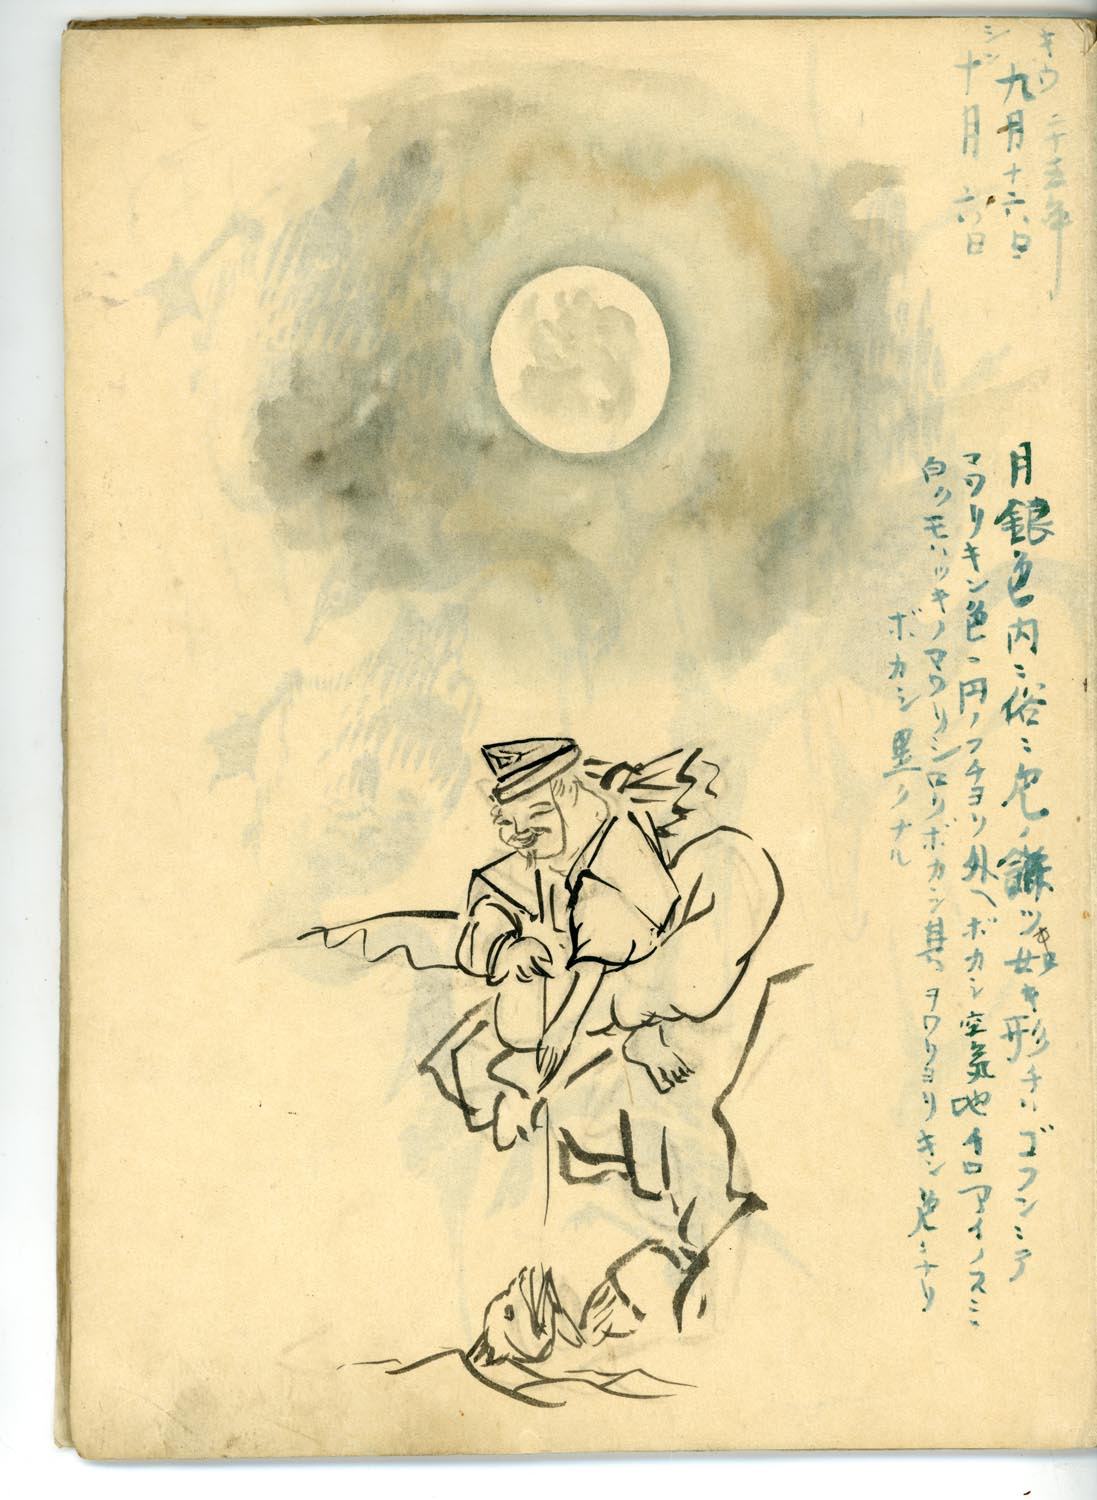 キウ 二十五年
九月十六日
シン
十月六日
月銀色内ニ俗ニ兎ノ ツ如キ形チハゴフンニテ
マワリキン色ニ円ノフチヨリ外ヘボカシ空気地イロアイノスミ
白クモハツキノマワリシロクボカシ其 マワリヨリキン色ニナリ
ボカシ黒クナル